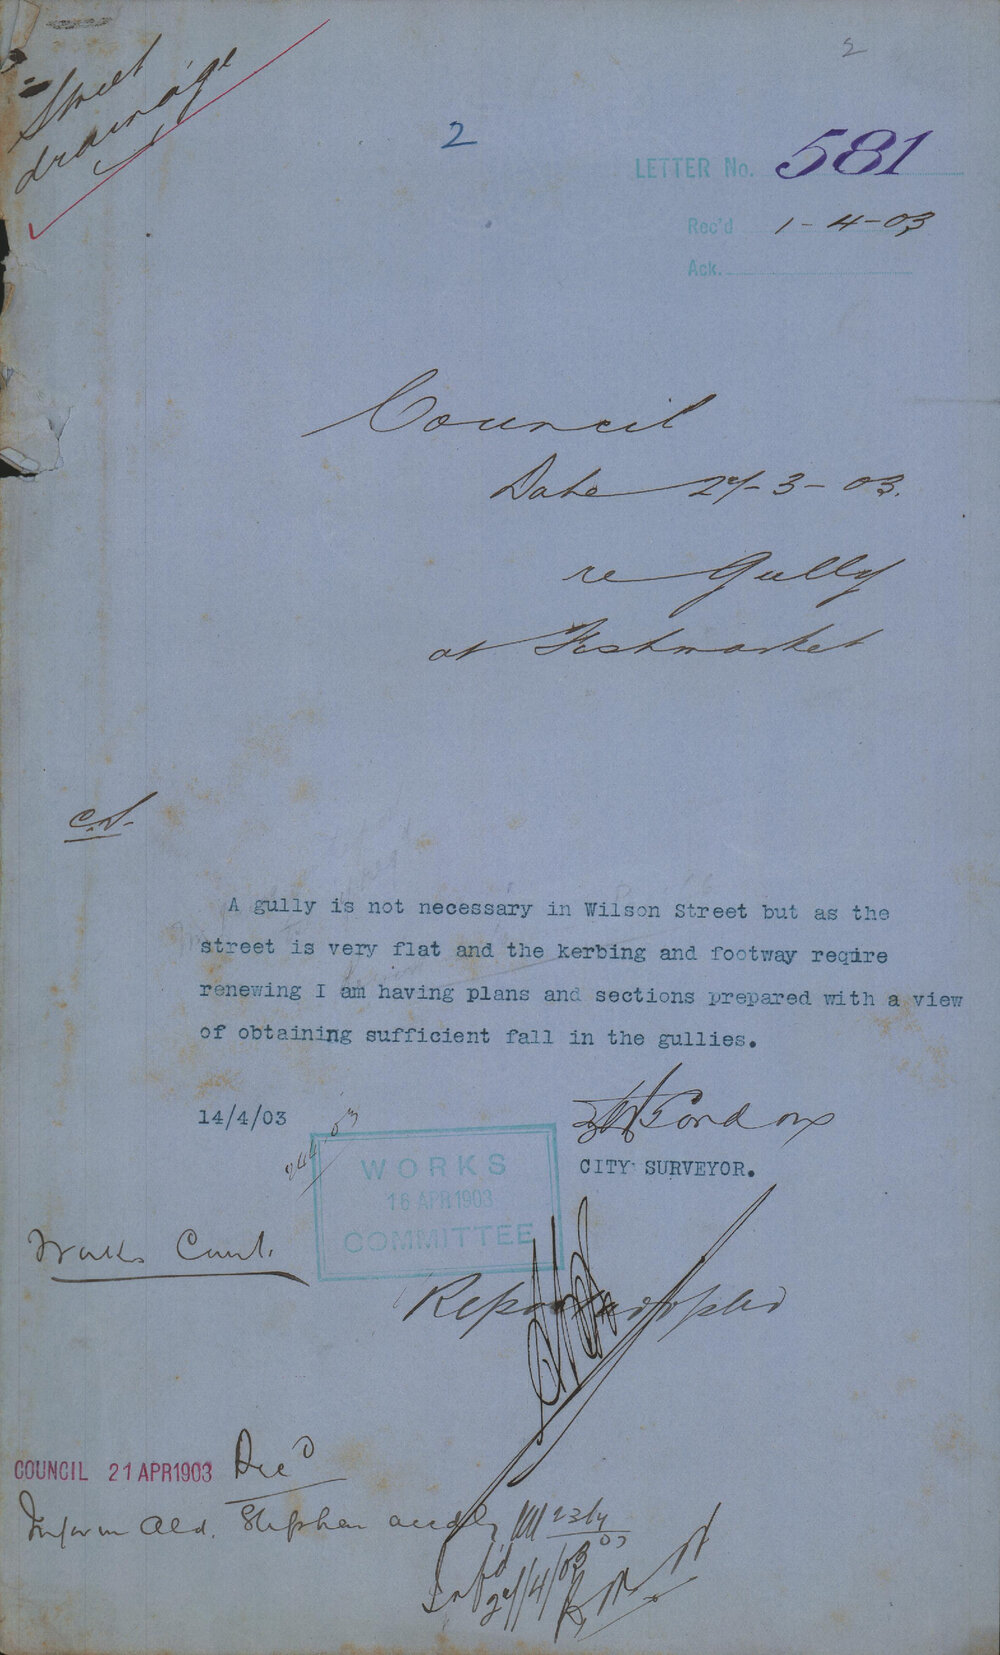 2
Street
drainage
2
LETTER No. 581
Rec'd 1-4-03
Ack.
Council
Date 27-3-03.
re Gully
at Fishmarket
C.S.
A gully is not necessary in Wilson Street but as the
street is very flat and the kerbing and footway reqire
renewing I am having plans and sections prepared with a view
of obtaining sufficient fall in the gullies.
14/4/03
Gordon
CITY SURVEYOR.
WORKS
16 APR 1903
COMMITTEE
Works Comt.
Report adopted
COUNCIL 21 APR 1903 Rec'd
Inform Ald. Stephen accdly 23/4
03
Inf'd